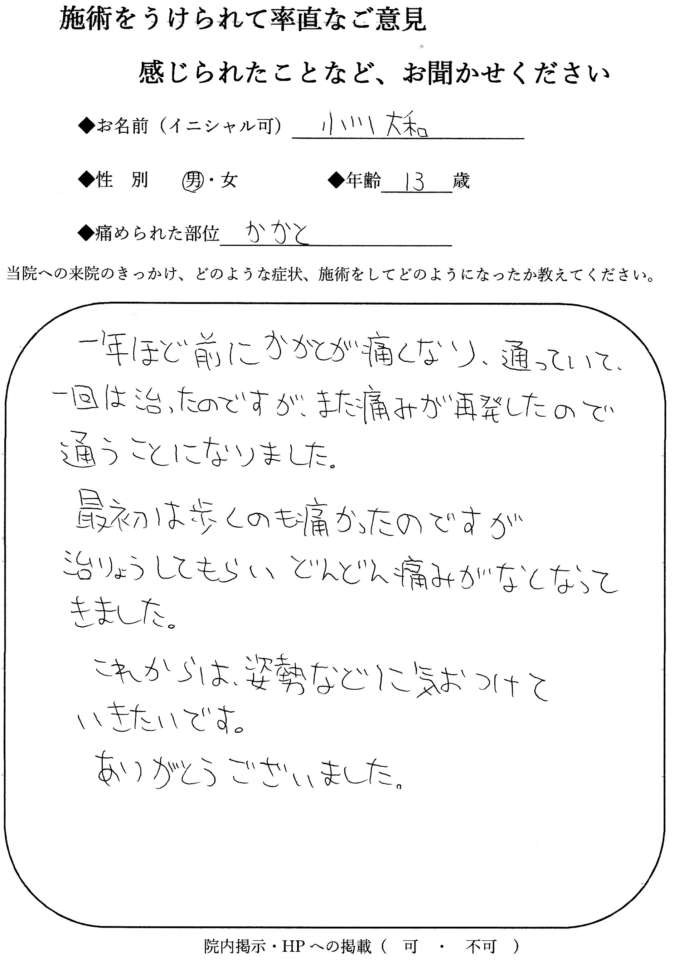 施術をうけられて率直なご意見
感じられたことなど、お聞かせください
◆お名前（イニシャル可） 小川 大和
◆性 別 男・女 ◆年齢 13 歳
◆痛められた部位 かかと
当院への来院のきっかけ、どのような症状、施術をしてどのようになったか教えてください。
一年ほど前にかかとが痛くなり、通っていて、
一回は治ったのですが、また痛みが再発したので
通うことになりました。
最初は歩くのも痛かったのですが
治りょうしてもらい どんどん痛みがなくなって
きました。
これからは、姿勢などに気おつけて
いきたいです。
ありがとうございました。
院内掲示・HPへの掲載（ 可 ・ 不可 ）